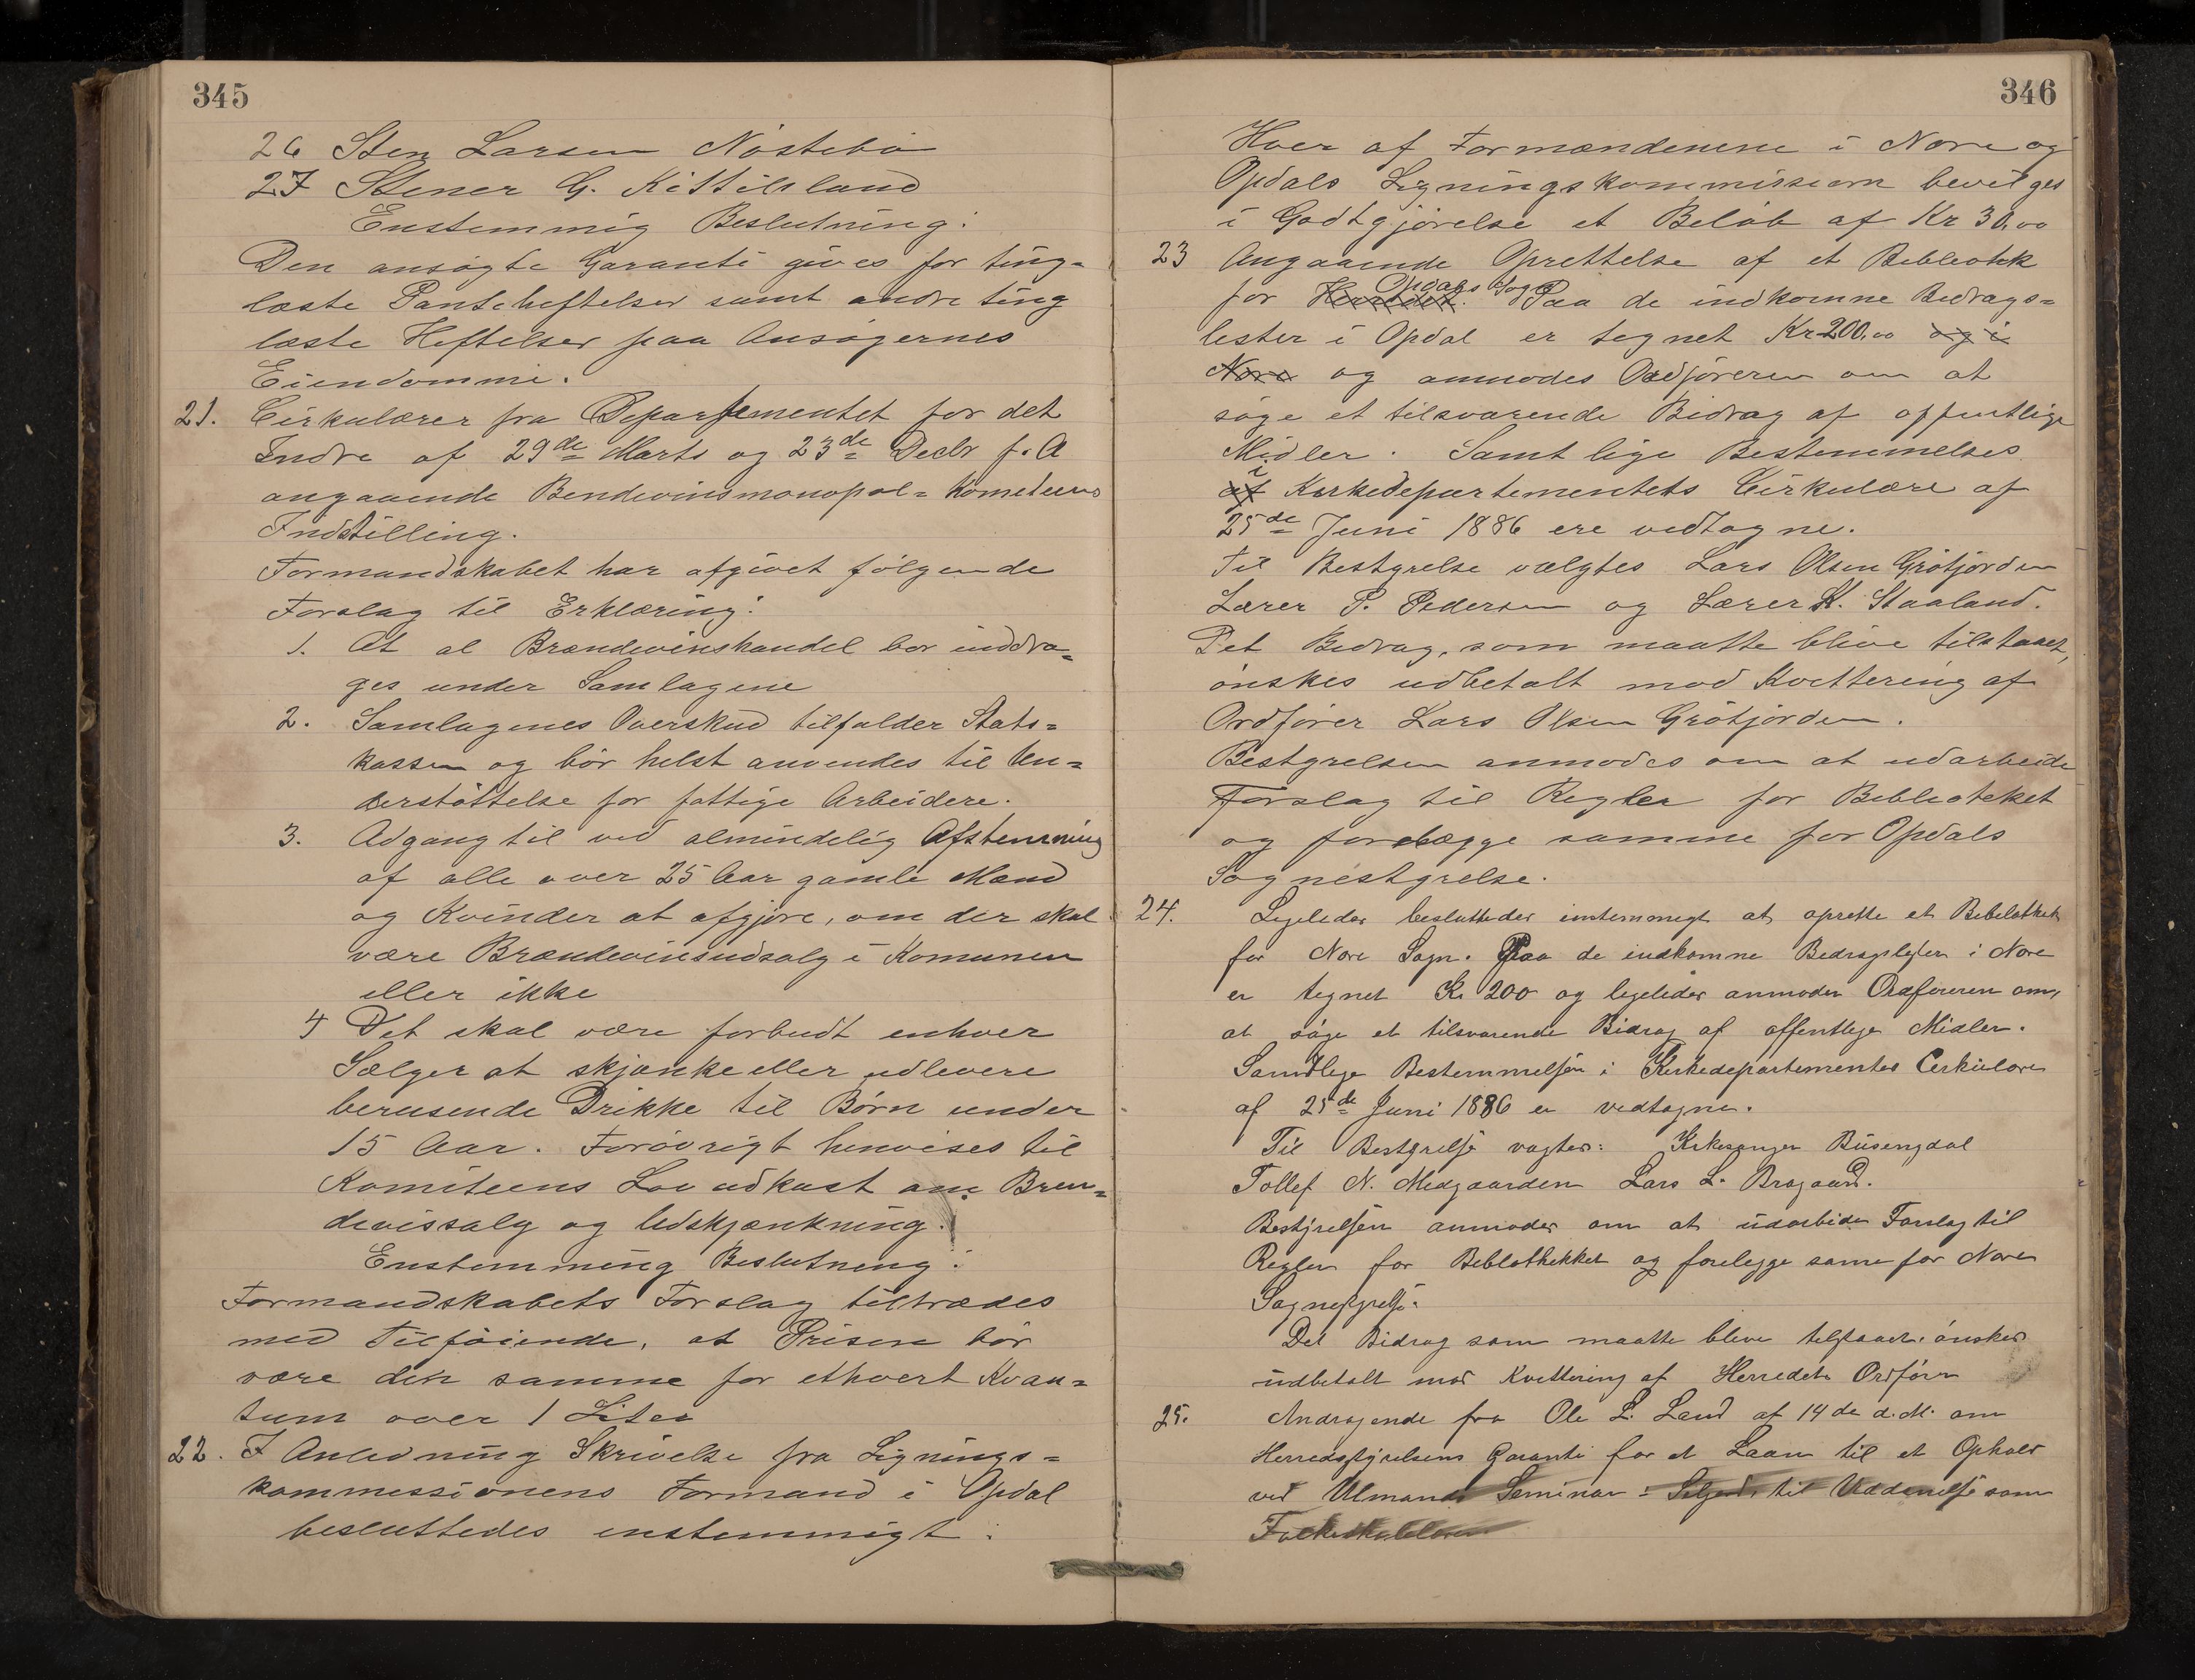 345
26 Sten Larsen Nöstebö
27 Stener G. Kittilsland
Enstemmig Beslutning:
Den ansögte Garanti gives for ting-
læste Pantcheftelser samt andre ting
læste Heftelser paa Ansögernes
Eiendomme.
21. Cirkulærer fra Departementet for det
Indre af 29de Marts og 23de Decbr f. A
angaaende Bendevinsmonopol-Kometeens
Indstilling.
Formandskabet har afgivet følgende
Forslag til Erklæring:
1. At al Brændevinshandel bør inddra-
ges under Samlagene
2. Samlagenes Overskud tilfalder Stats-
kassen og bör helst anvendes til Un-
derstöttelse for fattige Arbeidere.
3. Adgang til ved almindelig Afstemning
af alle over 25 Aar gamle Mænd
og Kvinder at afgjöre, om der skal
være Brændevinsudsalg i Komunen
eller ikke
4 Det skal være forbudt enhver
Sælger at skjænke eller udlevere
berusende Drikke til Børn under
15 Aar. Forövrigt henvises til
Komiteens Lovudkast om Bren-
devissalg og Udskjænkning.
Enstemming Beslutning:
Formandskabets Forslag tiltrædes
med Tilföiende, at Prisen bör
være den samme for ethvert Kvan-
tum over 1 Liter
22. I Anledning Skrivelse fra Lignings-
kommessionens Formand i Opdal
besluttedes enstemmigt:
346
Hver af Formændenene i Nore og
Opdals Ligningskommission bevilges
i Godtgjörelse et Belöb af Kr 30,00
23 Angaaende Oprettelse af et Bibliotek
Opdals Sogn
for Herredet. Paa de indkomne Bidrags-
lister i Opdal er tegnet Kr 200,00 og i
Nore og anmodes Ordföreren om at
söge et tilsvarende Bidrag af offentlige
Midler. Samtlige Bestemmelses
i
af Kirkedepartementets Cirkulære af
25de Juni 1886 ere vedtagne.
Til Bestyrelse vælgtes Lars Olsen Grötjorden
Lærer P. Pedersen og Lærer K. Staaland.
Det Bidrag, som maatte blive tilstaaet,
önskes udbetalt mod Kvittering af
Ordförer Lars Olsen Grötjorden.
Bestyrelsen anmodes om at udarbeide
Forslag til Regler for Biblioteket
og forelægge samme for Opdals
Sognestyrelse.
24. Ligeledes besluttedes enstemmigt at oprette et Bibelothek
for Nore Sogn. Paa de indkomne Bedragslister i Nore
er tegnet Kr 200 og ligeledes anmodes Ordföreren om,
at söge et tilsvarende Bidrag af offentlige Midler.
Samtlige Bestemmelser i Kirkedepartementes Cerkulære
af 25de Juni 1886 er vedtagne.
Til Bestyrelse vagtes: Kirkesanger Büsengdal
Tollef N. Medgaarden Lars L. Bragaard.
Bestyrelsen anmodes om at udarbide Forslag til
Regler for Beblothekket og forelegge same for Nore
Sognestyrelse.
Det Bidrag som maatte bleve telstaaet, önskes
udbetalt mod Kvettering af Herredets Ordförer
25. Andragende fra Ole L. Land af 14de d. M. om
Herredsstyrelsens Garanti for et Laan til et Ophold
ved Ulmanns Seminar i Seljord, til Uddannelse som
Folkeskolelærer